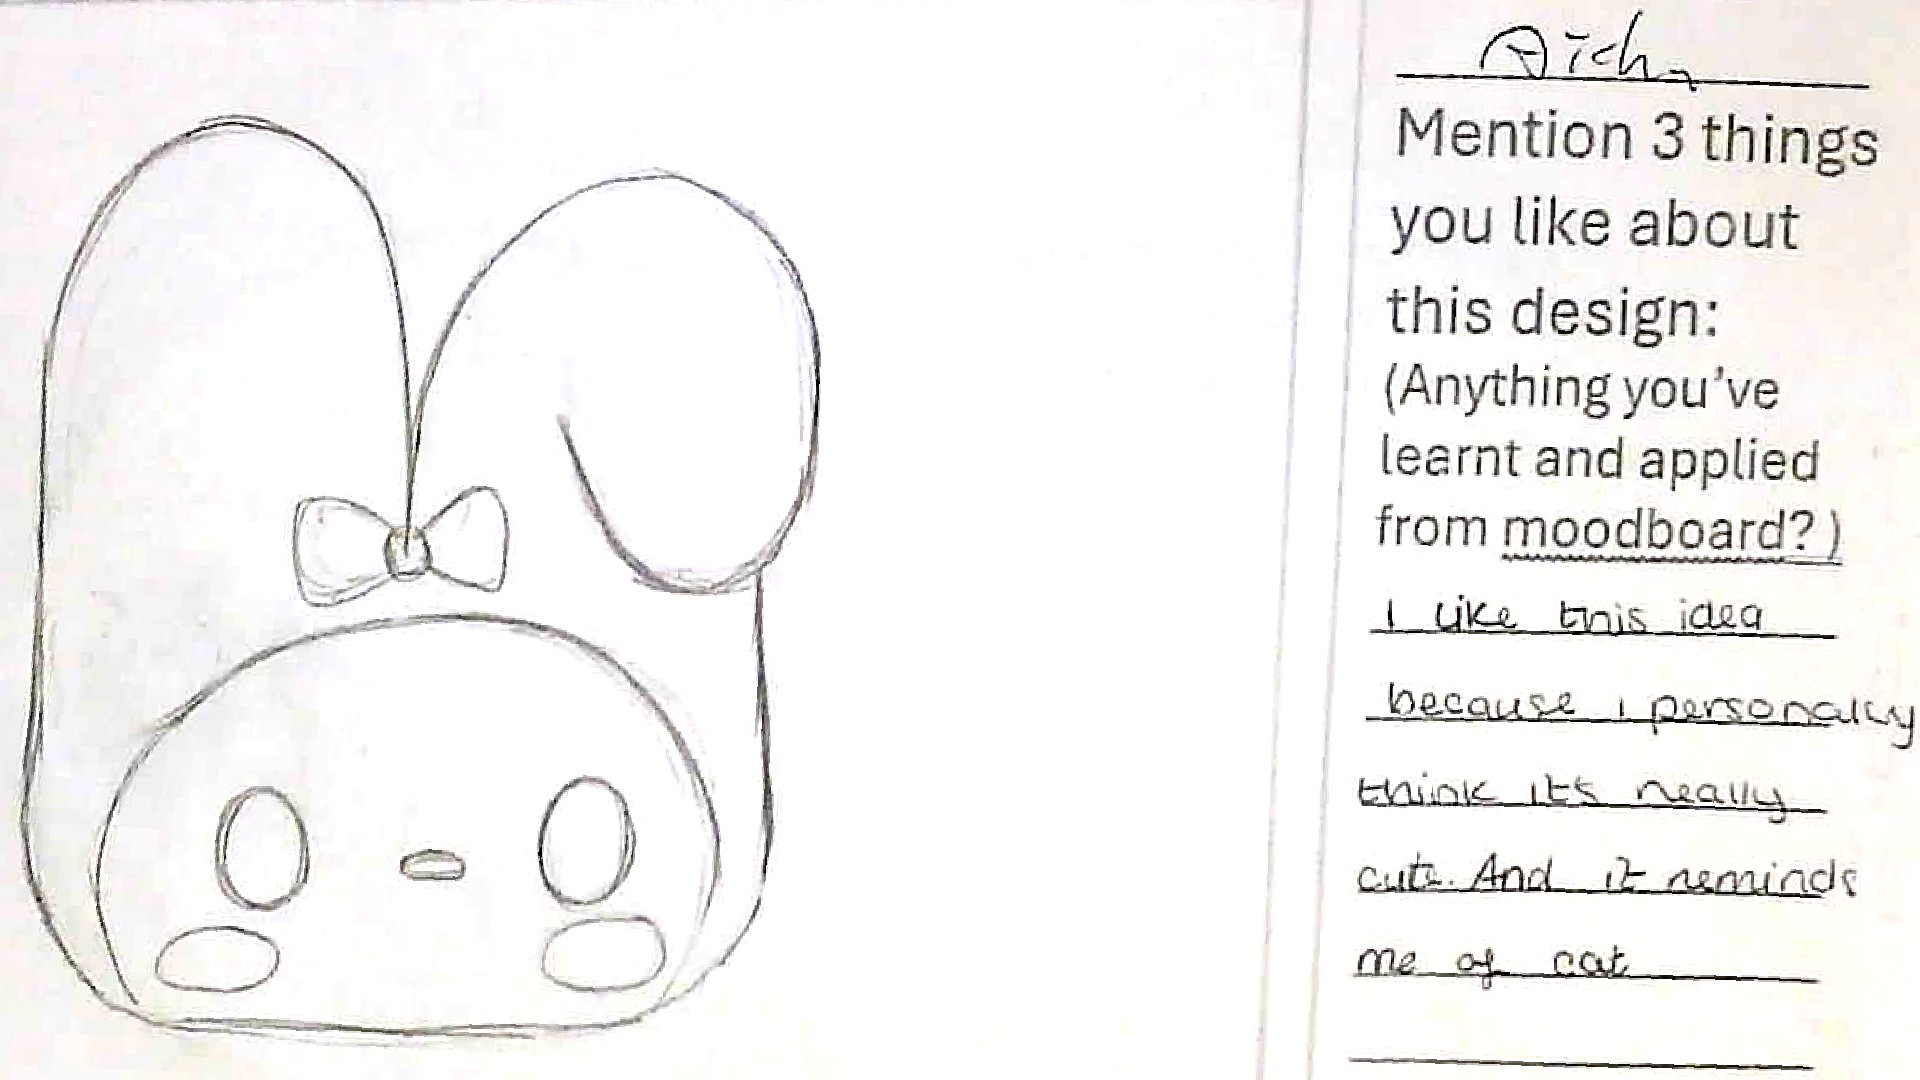 Aicha
Mention 3 things
you like about
this design:
(Anything you've
learnt and applied
from moodboard?)
I like this idea
because i personally
think it's really
cute. And it reminds
me of cat